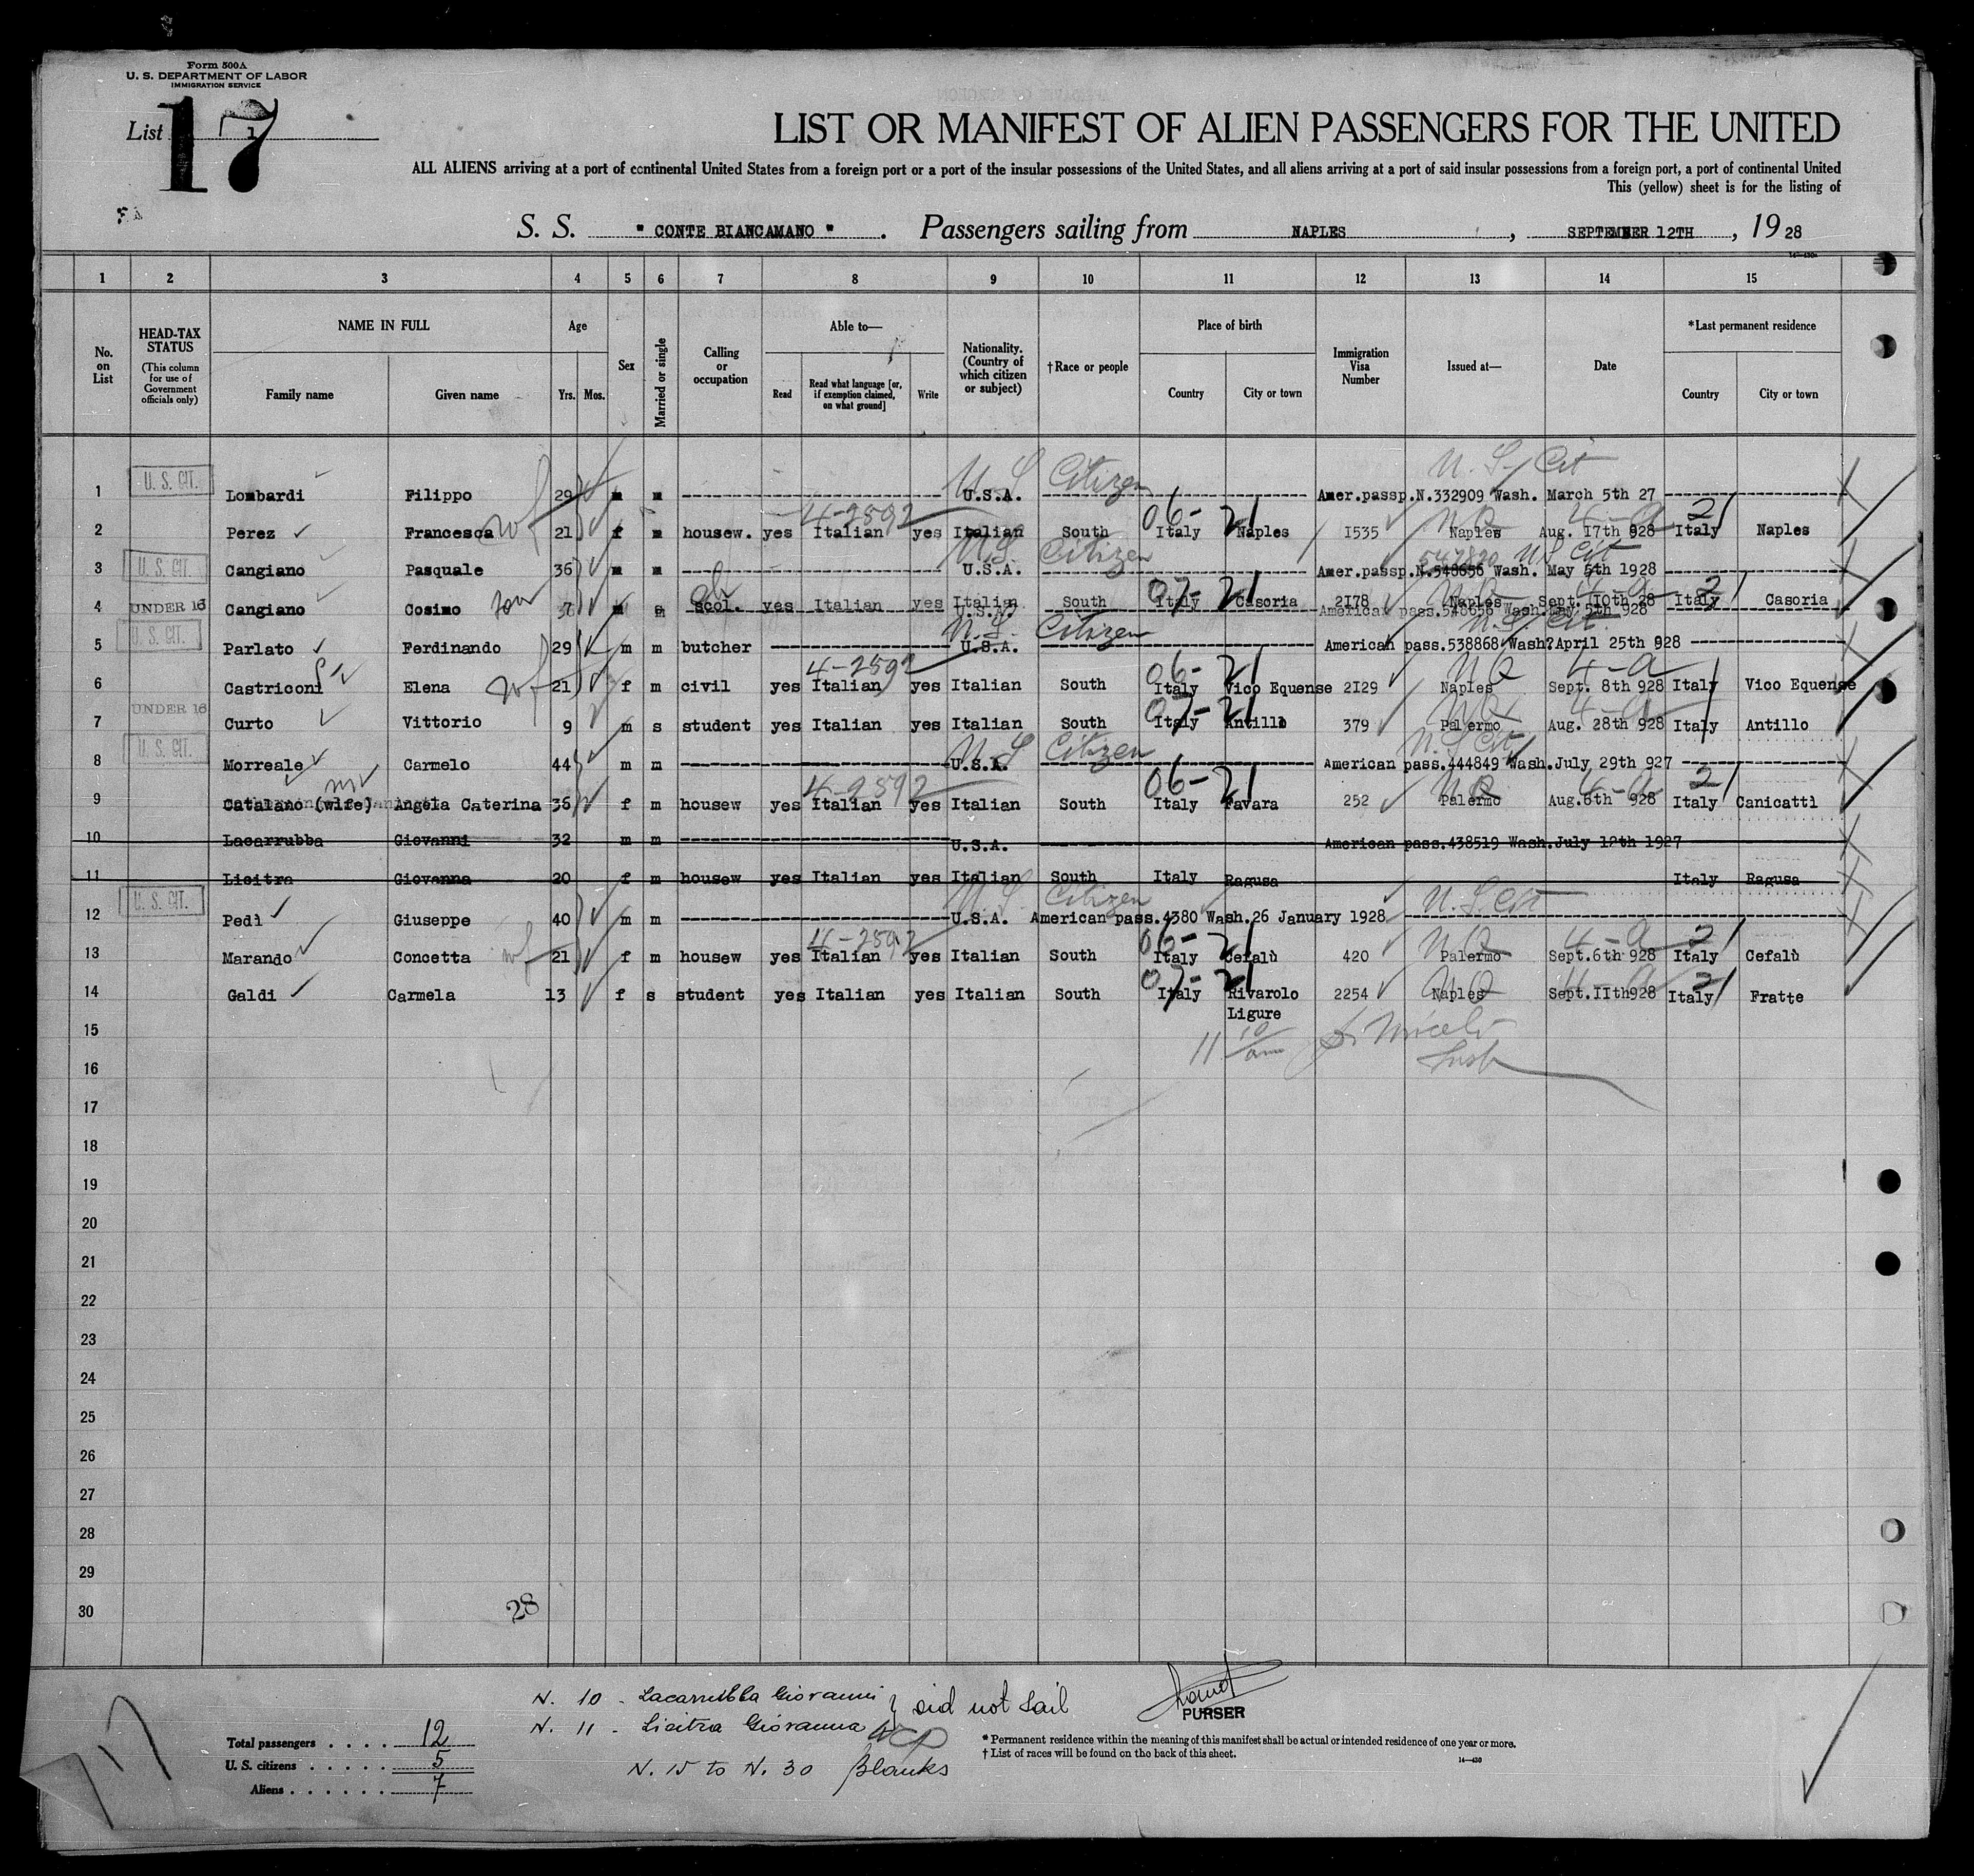 Form 500A
U. S. DEPARTMENT OF LABOR
IMMIGRATION SERVICE
List 1
17
LIST OR MANIFEST OF ALIEN PASSENGERS FOR THE UNITED
ALL ALIENS arriving at a port of continental United States from a foreign port or a port of the insular possessions of the United States, and all aliens arriving at a port of said insular possessions from a foreign port, a port of continental United
This (yellow) sheet is for the listing of
S. S. " CONTE BIANCAMANO " . Passengers sailing from NAPLES , SEPTEMBER 12TH , 1928
1 2 3 4 5 6 7 8 9 10 11 12 13 14 15
No. on List
HEAD-TAX STATUS (This column for use of Government officials only)
NAME IN FULL Family name Given name
Age Yrs. Mos.
Sex
Married or single
Calling or occupation
Able to— Read Read what language [or, if exemption claimed, on what ground] Write
Nationality. (Country of which citizen or subject)
†Race or people
Place of birth Country City or town
Immigration Visa Number
Issued at—
Date
*Last permanent residence Country City or town
U.S. Citizen U.S. Cit
1 U. S. CIT. Lombardi Filippo 29 m m U.S.A. Amer.passp.N.332909 Wash. March 5th 27
4-2592 06- 21 NQ 4-a 21
2 Perez Francesca wf 21 f m housew. yes Italian yes Italian South Italy Naples 1535 Naples Aug. 17th 928 Italy Naples
U.S. Citizen 547820 U.S. Cit
3 U. S. CIT. Cangiano Pasquale 36 m m U.S.A. Amer.passp.N.548656 Wash. May 5th 1928
07- 21 NQ 4-a 21
4 UNDER 16 Cangiano Cosimo son m s scol. yes Italian yes Italian South Italy Casoria 2178 Naples Sept. 10th 28 Italy Casoria
U.S.A. American pass.548656 Wash.May 5th 928
U.S. Citizen U.S. Cit.
5 U. S. CIT. Parlato Ferdinando 29 m m butcher U.S.A. American pass.538868 Wash?April 25th 928
4-2592 06- 21 NQ 4-a
6 Castriconi Elena wf 21 f m civil yes Italian yes Italian South Italy Vico Equense 2129 Naples Sept. 8th 928 Italy Vico Equense
07- 21 NQ 4-a
7 UNDER 16 Curto Vittorio 9 m s student yes Italian yes Italian South Italy Antillo 379 Palermo Aug. 28th 928 Italy Antillo
U.S. Citizen U.S. Cit
8 U. S. CIT. Morreale Carmelo 44 m m U.S.A. American pass.444849 Wash.July 29th 927
4-2592 06- 21 NQ 4-a 21
9 Catalano (wife) Angela Caterina 36 f m housew yes Italian yes Italian South Italy Favara 252 Palermo Aug.6th 928 Italy Canicattì
10 Lacarrubba Giovanni 32 m m U.S.A. American pass.438519 Wash.July 12th 1927
11 Licitra Giovanna 20 f m housew yes Italian yes Italian South Italy Ragusa Italy Ragusa
U.S. Citizen U.S. Cit
12 U. S. CIT. Pedì Giuseppe 40 m m U.S.A. American pass.4380 Wash.26 January 1928
4-2592 06- 21 NQ 4-a 21
13 Marando Concetta wf 21 f m housew yes Italian yes Italian South Italy Cefalù 420 Palermo Sept.6th 928 Italy Cefalù
07- 21 NQ 4-a 21
14 Galdi Carmela 13 f s student yes Italian yes Italian South Italy Rivarolo 2254 Naples Sept.IIth928 Italy Fratte
Ligure
15
16
17
18
19
20
21
22
23
24
25
26
27
28
29
30
28
N. 10 - Lacarrubba Giovanni
N. 11 - Licitra Giovanna } did not sail
N. 15 to N. 30 Blanks
PURSER
Total passengers . . . . 12
U.S. citizens . . . . . 5
Aliens . . . . . . 7
17
* Permanent residence within the meaning of this manifest shall be actual or intended residence of one year or more.
† List of races will be found on the back of this sheet.
14—430